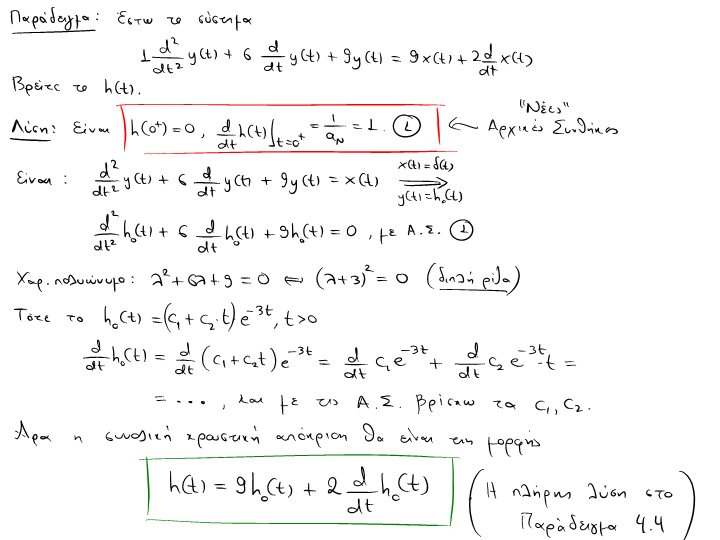 Παράδειγμα: Έστω το σύστημα
1 d²/dt² y(t) + 6 d/dt y(t) + 9y(t) = 9x(t) + 2 d/dt x(t)
Βρείτε το h(t).
"Νέες"
Λύση: Είναι h(0⁺) = 0, d/dt h(t)|t=0⁺ = 1/a_N = 1. ① ← Αρχικές Συνθήκες
Είναι: d²/dt² y(t) + 6 d/dt y(t) + 9y(t) = x(t) x(t)=δ(t) ⟹ y(t)=h₀(t)
d²/dt² h₀(t) + 6 d/dt h₀(t) + 9h₀(t) = 0, με Α.Σ. ①
Χαρ. πολυώνυμο: λ² + 6λ + 9 = 0 ⇐ (λ+3)² = 0 (διπλή ρίζα)
Τότε το h₀(t) = (c₁ + c₂·t) e^{-3t}, t>0
d/dt h₀(t) = d/dt (c₁ + c₂t) e^{-3t} = d/dt c₁e^{-3t} + d/dt c₂ e^{-3t}·t =
= ..., και με τις Α.Σ. βρίσκω τα c₁, c₂.
Άρα η συνολική κρουστική απόκριση θα είναι της μορφής
h(t) = 9h₀(t) + 2 d/dt h₀(t)
(Η πλήρης λύση στο
Παράδειγμα 4.4)